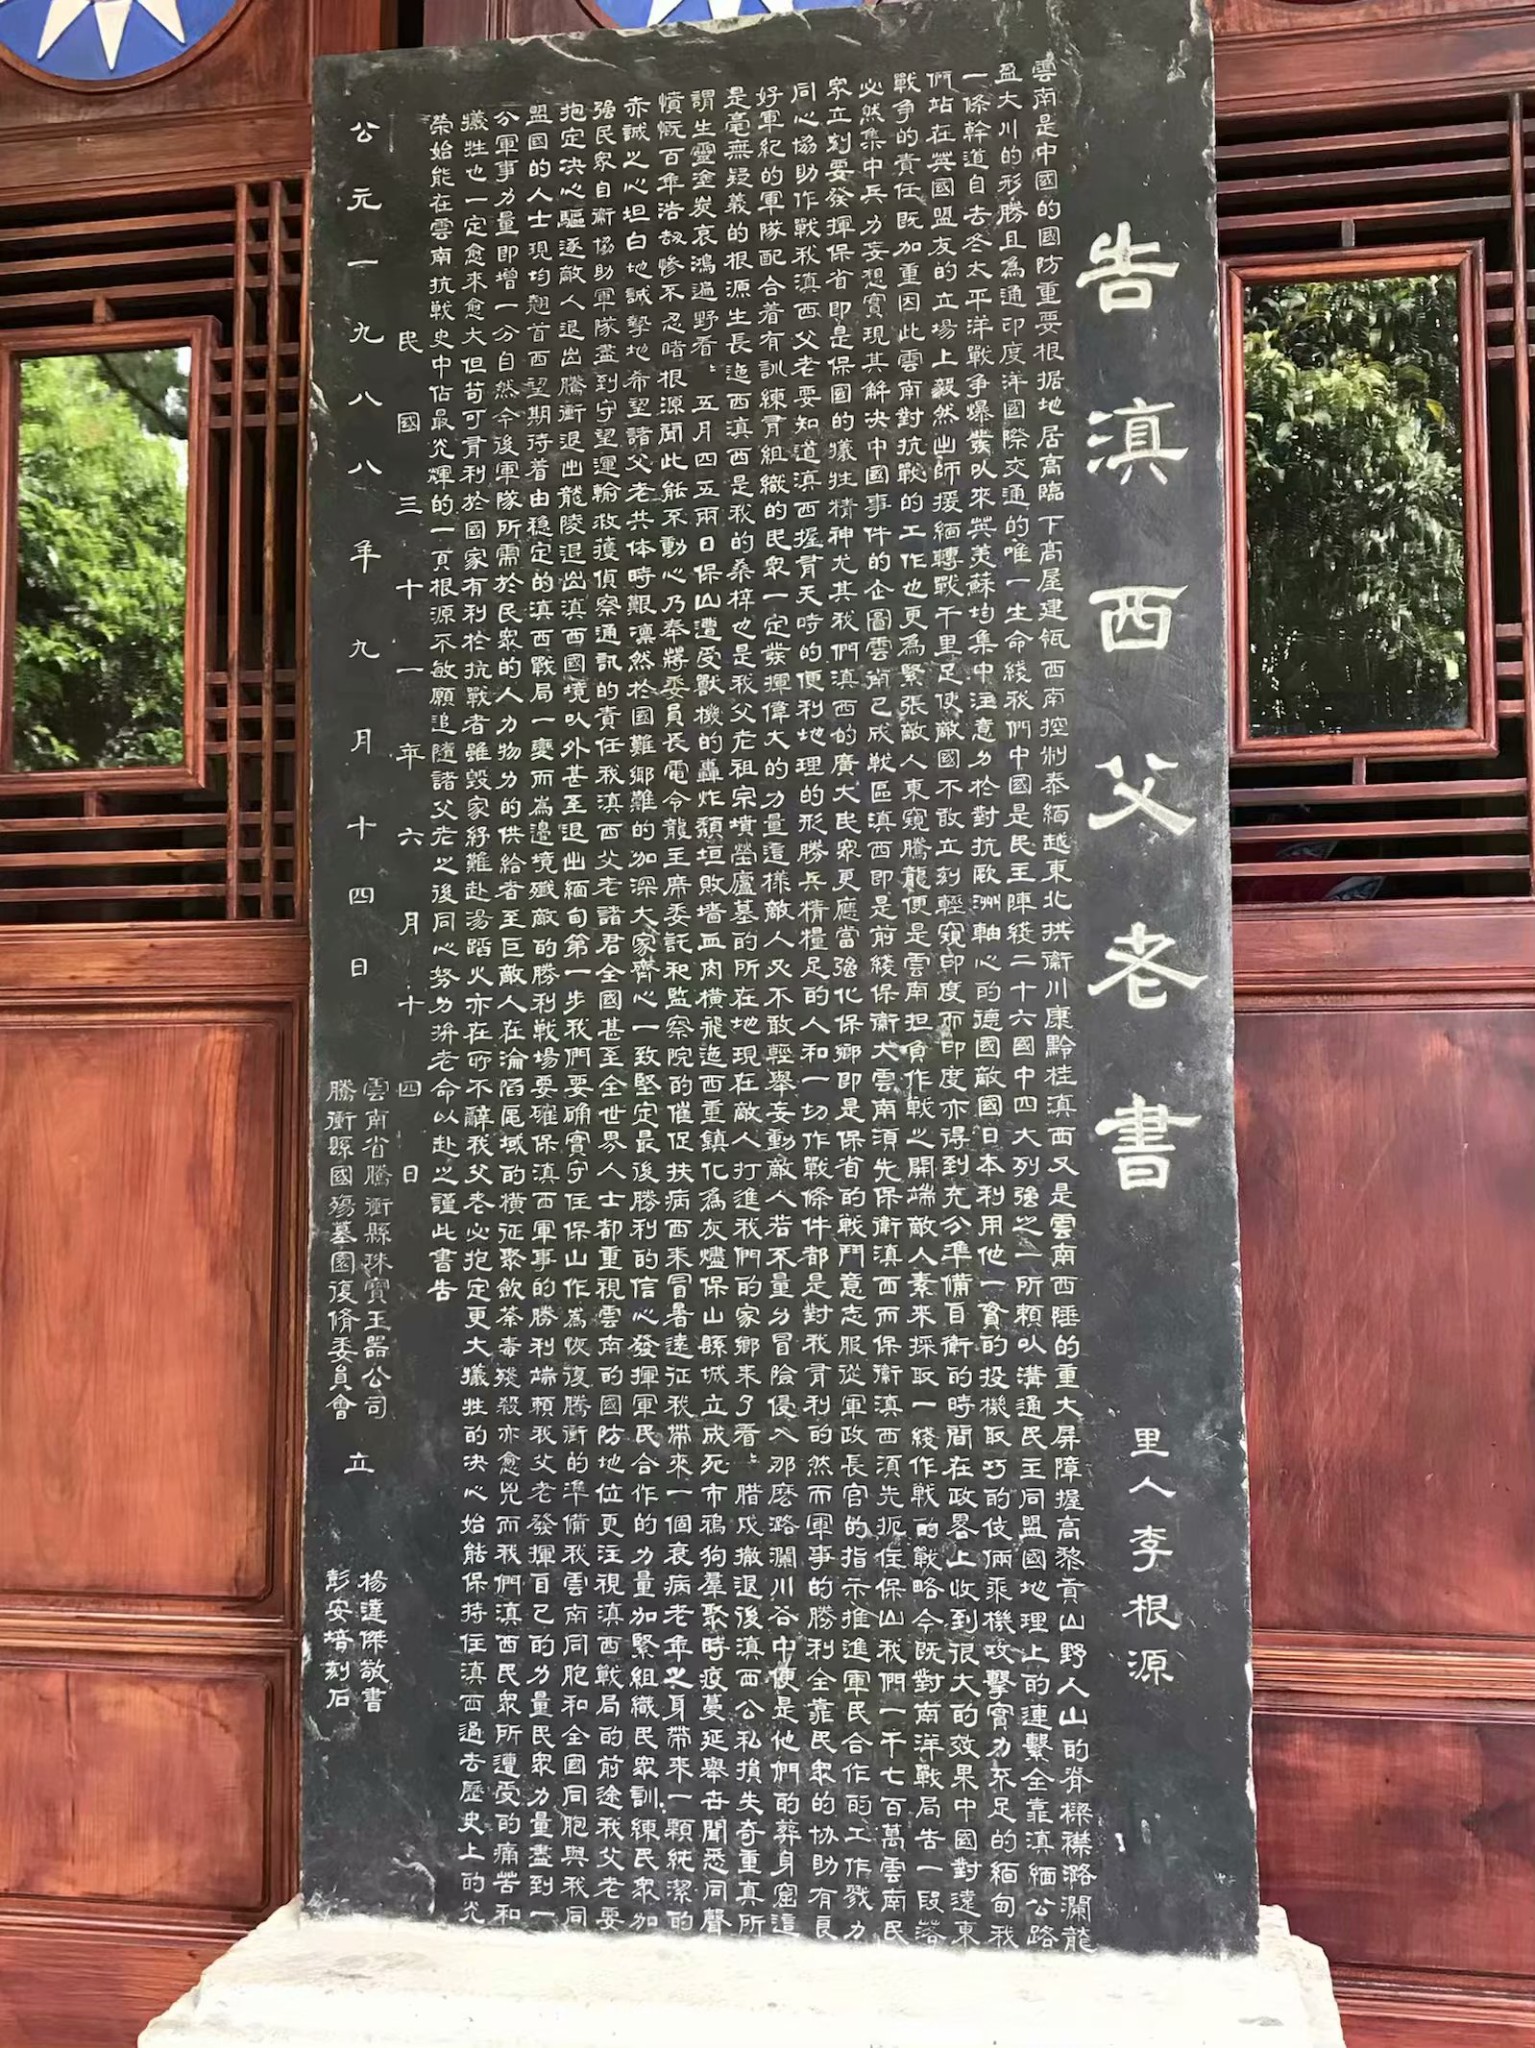 告滇西父老書
里人李根源
雲南是中國的國防重要根据地居高臨下高屋建瓴西南控制泰緬越東北拱衞川康黔桂滇西又是雲南西陲的重大屏障握高黎貢山野人山的脊樑襟潞瀾龍
盈大川的形勝且為通印度洋國際交通的唯一生命綫我們中國是民主陣綫二十六國中四大列強之一所賴以溝通民主同盟國地理上的連繫全靠滇緬公路
一條幹道自去冬太平洋戰争爆發以來英美蘇均集中注意力於對抗歐洲軸心的德國敵國日本利用他一貫的投機取巧的伎倆乘機攻擊實力不足的緬甸我
們站在英國盟友的立場上毅然出師援緬轉戰千里足使敵國不敢立刻輕窺印度而印度亦得到充分準備自衞的時間在政畧上收到很大的效果中國對遠東
戰争的責任既加重因此雲南對抗戰的工作也更為緊張敵人東窺騰龍便是雲南担負作戰之開端敵人素來採取一綫作戰的戰略今既對南洋戰局告一段落
必然集中兵力妄想實現其解决中國事件的企圖雲南已成戰區滇西即是前綫保衞大雲南須先保衞滇西而保衞滇西須先扼住保山我們一千七百萬雲南民
衆立刻要發揮保省即是保國的犧牲精神尤其我們滇西的廣大民衆更應當強化保鄉即是保省的戰鬥意志服從軍政長官的指示推進軍民合作的工作戮力
同心協助作戰我滇西父老要知道滇西握有天時的便利地理的形勝兵精糧足的人和一切作戰條件都是對我有利的然而軍事的勝利全靠民衆的协助有良
好軍紀的軍隊配合着有訓練有組織的民衆一定發揮偉大的力量這樣敵人又不敢輕舉妄動敵人若不量力冒險侵入那麽潞瀾川谷中便是他們的葬身窟這
是毫無疑義的根源生長迤西滇西是我的桑梓也是我父老祖宗墳塋廬墓的所在地現在敵人打進我們的家鄉来了看腊戍撤退後滇西公私損失奇重真所
謂生靈塗炭哀鴻遍野看五月四五兩日保山遭受獸機的轟炸頹垣敗墻血肉横飛迤西重鎮化為灰燼保山縣城立成死市鴉狗羣聚時疫蔓延舉世聞悉同聲
憤慨百年浩劫慘不忍睹根源聞此能不動心乃奉蔣委員長電令龍主席委託和監察院的催促扶病西来冒暑遠征我带來一個衰病老年之身帶来一顆純潔的
赤誠之心坦白地誠摯地希望諸父老共体時艱凜然於國難鄉難的加深大家齊心一致堅定最後勝利的信心發揮軍民合作的力量加緊組織民衆訓練民衆加
强民衆自衞協助軍隊盡到守望運輸救護偵察通訊的責任我滇西父老諸君全國甚至全世界人士都重視雲南的國防地位更注視滇西戰局的前途我父老要
抱定决心驅逐敵人退出騰衝退出龍陵退出滇西國境以外甚至退出緬甸第一步我們要确實守住保山作為恢復騰衝的準備我雲南同胞和全國同胞與我同
盟國的人士現均翹首西望期待着由穩定的滇西戰局一變而為邊境殲敵的勝利戰場要確保滇西軍事的勝利端賴我父老發揮自己的力量民衆力量盡到一
分軍事力量即增一分自然今後軍隊所需於民衆的人力物力的供給者至巨敵人在淪陷區域的横征聚飲荼毒殘殺亦愈兇而我們滇西民衆所遭受的痛苦和
犧牲也一定愈來愈大但苟可有利於國家有利於抗戰者雖毁家紓難赴湯蹈火亦在所不辭我父老必抱定更大犧牲的决心始能保持住滇西過去歷史上的光
榮始能在雲南抗戰史中佔最光輝的一頁根源不敏願追隨諸父老之後同心努力拚老命以赴之謹此書告
民國三十一年六月十四日
公元一九八八年九月十四日
雲南省騰衝縣珠寶玉器公司
騰衝縣國殤墓園復修委員會
立
楊達傑敬書
彭安培刻石